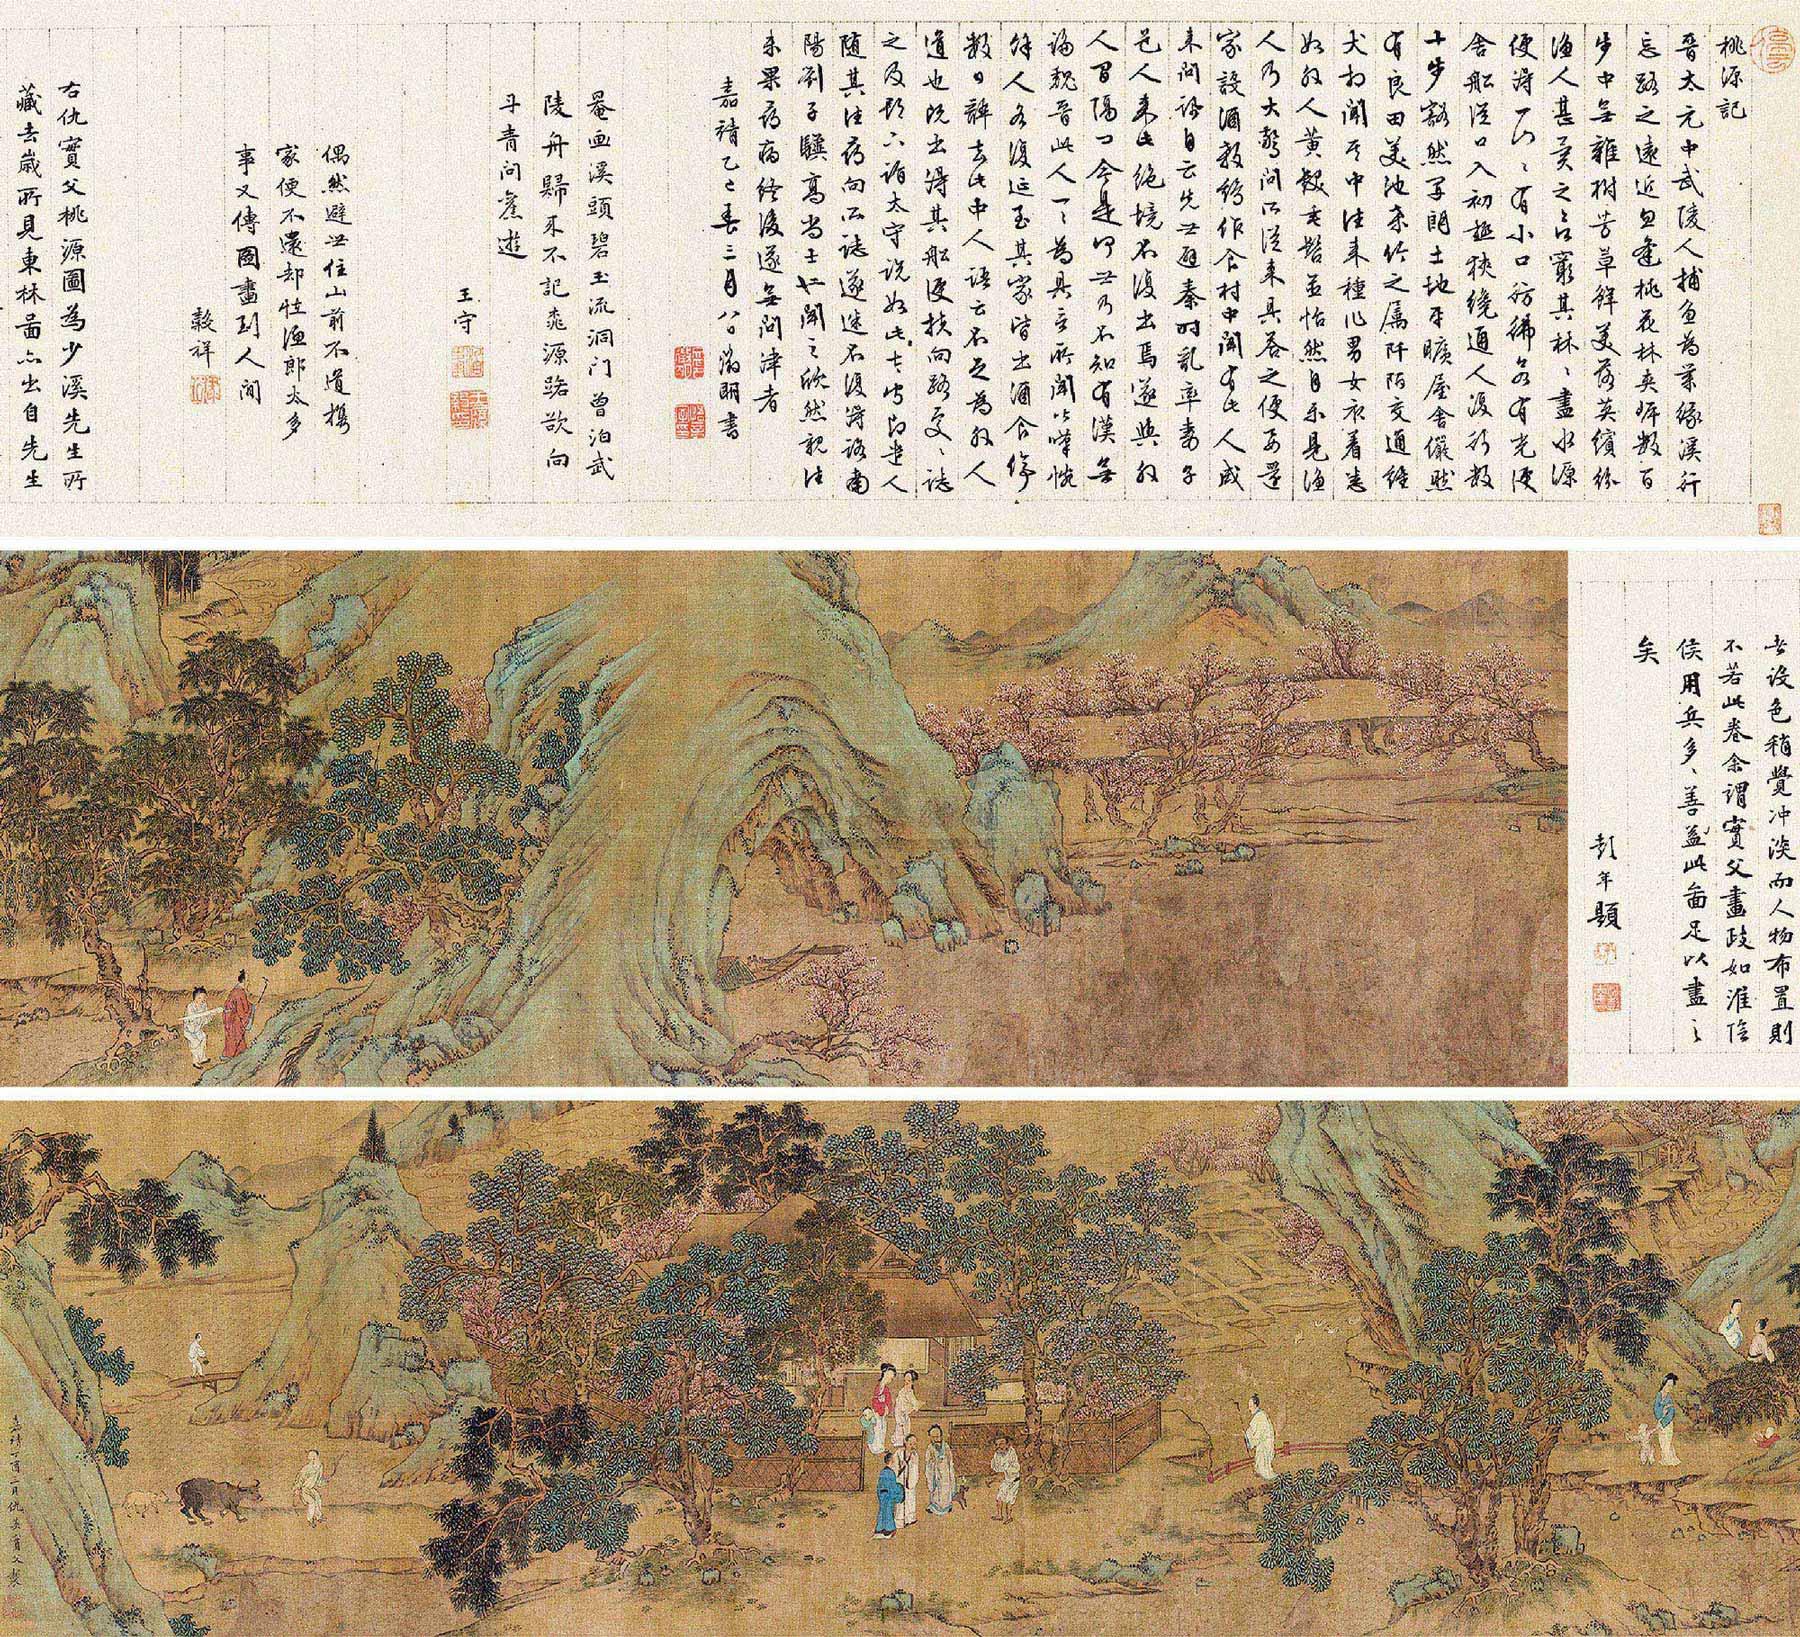 桃源記
晉太元中武陵人捕魚為業緣溪行
忘路之遠近忽逢桃花林夾岸數百
步中無雜樹芳草鮮美落英繽紛
漁人甚異之欲窮其林〻盡水源
便得一山〻有小口彷彿若有光便
舍船從口入初極狹纔通人復行數
十步豁然開朗土地平曠屋舍儼然
有良田美池桑竹之屬阡陌交通雞
犬相聞其中往來種作男女衣着悉
如外人黃髮垂髫並怡然自樂見漁
人乃大驚問所從來具答之便要還
家設酒殺雞作食村中聞有此人咸
來問訊自云先世避秦時亂率妻子
邑人來此絕境不復出焉遂與外
人間隔問今是何世乃不知有漢無
論魏晉此人一一為具言所聞皆嘆惋
餘人各復延至其家皆出酒食停
數日辭去此中人語云不足為外人
道也既出得其船便扶向路處〻誌
之及郡下詣太守說如此太守即遣人
隨其往尋向所誌遂迷不復得路南
陽劉子驥高尚士也聞之欣然親往
未果尋病終後遂無問津者
嘉靖乙巳春三月八日徵明書
罨畫溪頭碧玉流洞門曾泊武
陵舟歸來不記桃源路欲向
丹青問舊遊
王守
偶然避世住山前不道攜
家便不還却怪漁郎太多
事又傳圖畫到人間
穀祥
右仇實父桃源圖為少溪先生所
藏去歲所見東林圖亦出自先生
者設色稍覺冲淡而人物布置則
不若此卷余謂實父畫政如淮陰
侯用兵多〻善益此圖足以盡之
矣
彭年題
嘉靖丁酉二月仇英實父製